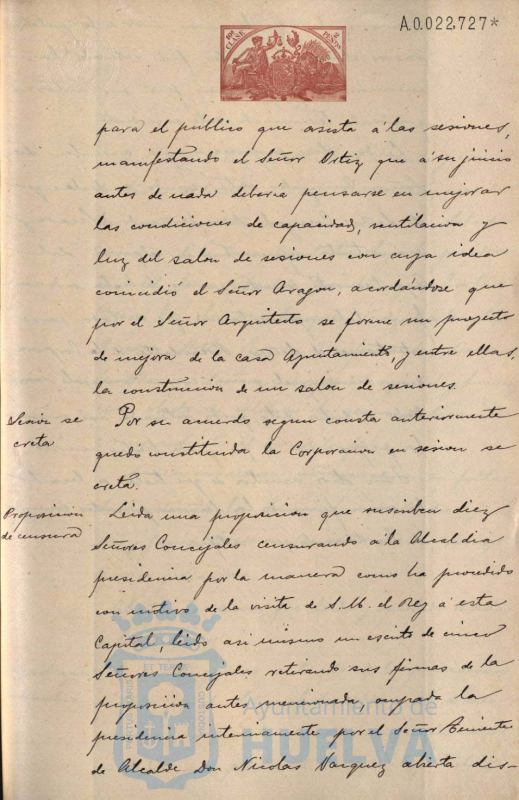 A.0.022,727*
10ª CLASE
2 PESETAS
para el público que asista á las sesiones,
manifestando el Señor Ortiz que á su juicio
antes de nada deberia pensarse en mejorar
las condiciones de capacidad, ventilacion y
luz del salon de sesiones con cuya idea
coincidió el Señor Aragon, acordándose que
por el Señor Arquitecto se forme un proyecto
de mejora de la casa Ayuntamiento, y entre ellas,
la construccion de un salon de sesiones.
Sesion se
creta
Por su acuerdo segun consta anteriormente
quedó constituida la Corporacion en sesion se
creta.
Proposicion
de censura
Leida una proposicion que suscriben diez
Señores Concejales censurando á la Alcaldia
presidencia por la manera como ha procedido
con motivo de la visita de S. M. el Rey á esta
Capital, leido asi mismo un escrito de cinco
Señores Concejales retirando sus firmas de la
proposicion antes mencionada, ocupada la
presidencia internamente por el Señor Teniente
de Alcalde Don Nicolas Vazquez abierta dis-
Ayuntamiento de
HUELVA